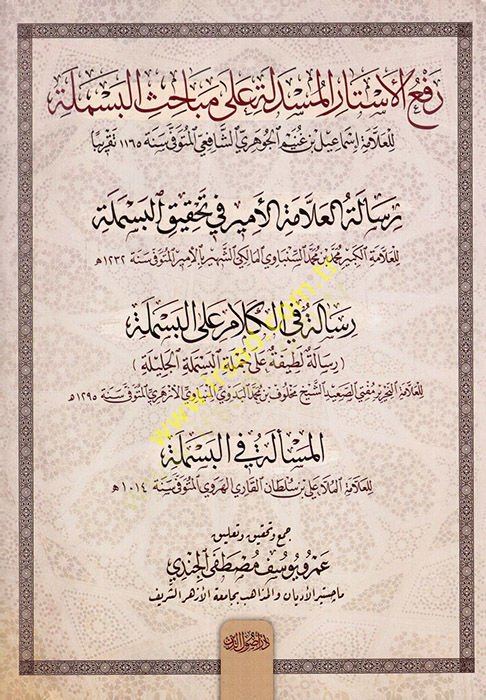 رفع الأستار المسدلة على مباحث البسملة
للعلامة إسماعيل بن غنيم الجوهري الشافعي المتوفى سنة ١١٦٥ تقريبا
رسالة العلامة الأمير في تحقيق البسملة
للعلامة الكبير محمد بن محمد السنباوي المالكي الشهير بالأمير المتوفى سنة ١٢٣٢ هـ
رسالة في الكلام على البسملة
( رسالة لطيفة على جملة البسملة الجليلة )
للعلامة النحرير مفتي الصعيد الشيخ مخلوف بن محمد البدوي المنياوي الأزهري المتوفى سنة ١٢٩٥ هـ
المسألة في البسملة
للعلامة الملا علي بن سلطان القاري الهروي المتوفى سنة ١٠١٤ هـ
جمع وتحقيق وتعليق
عمرو يوسف مصطفى الجندي
ماجستير الأديان والمذاهب بجامعة الأزهر الشريف
دار أصول الدين